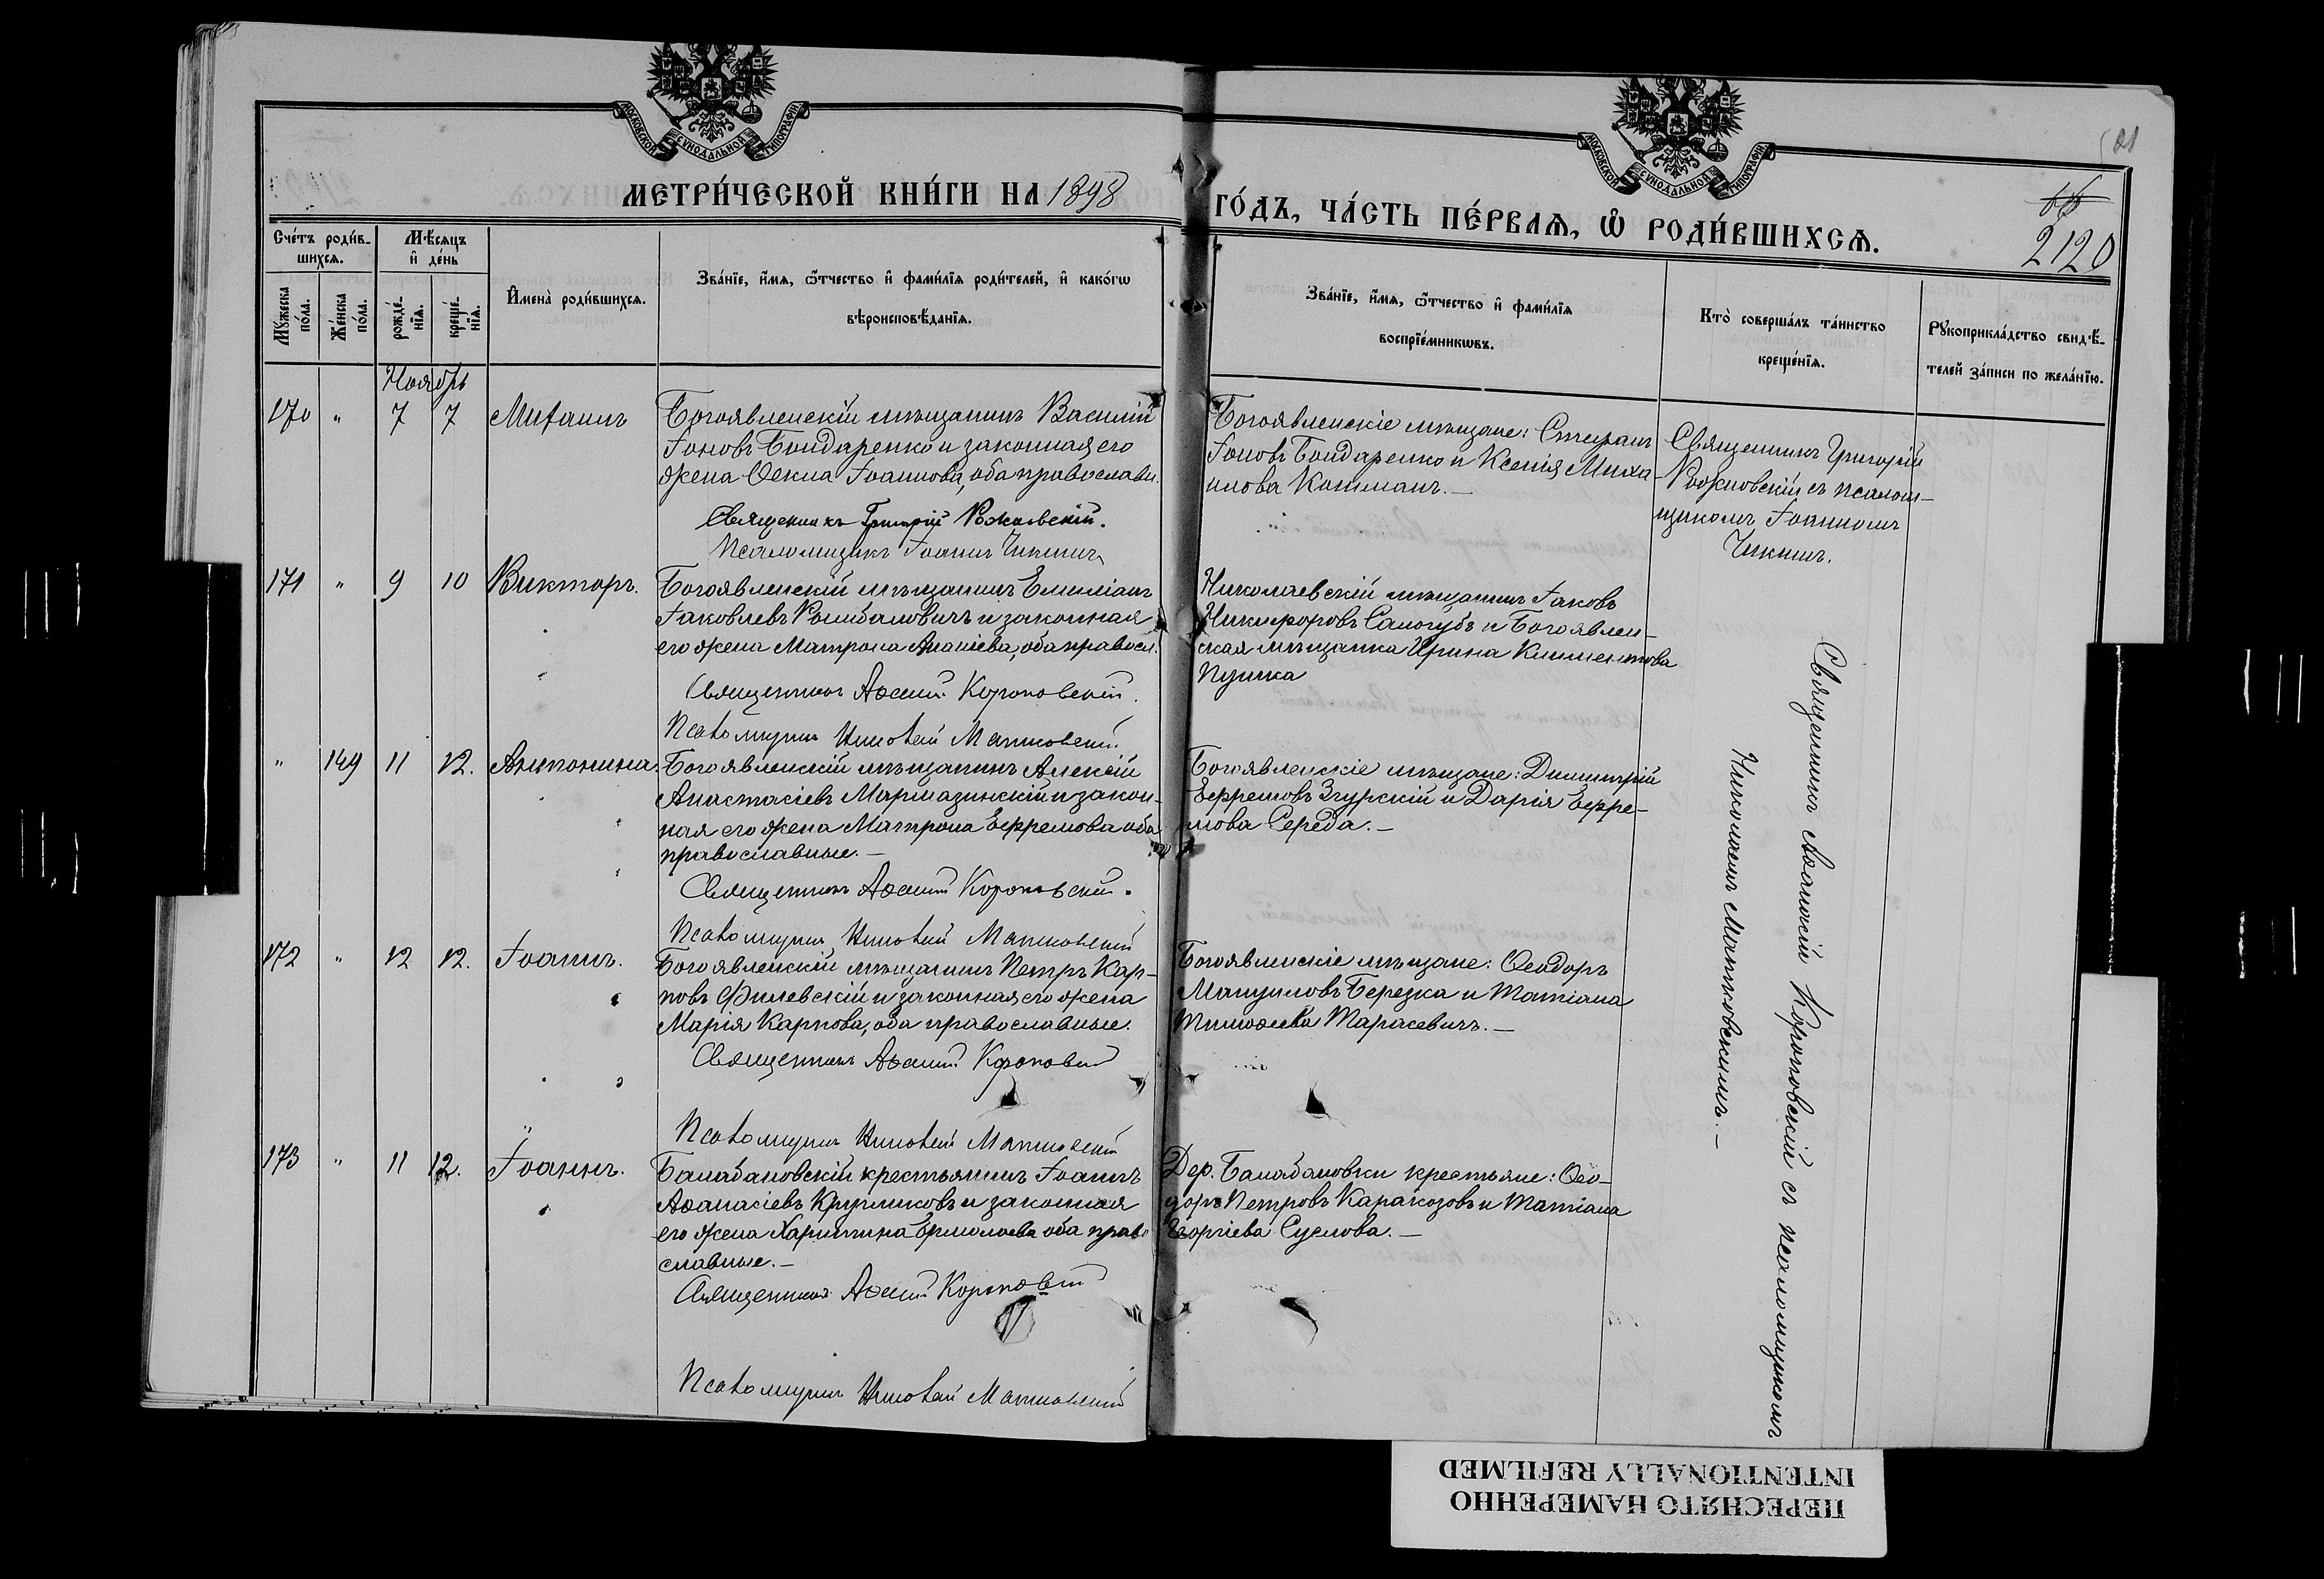 МОСКОВСКОЙ СѴНОДАЛЬНОЙ ТИПОГРАФІИ
МОСКОВСКОЙ СѴНОДАЛЬНОЙ ТИПОГРАФІИ
МЕТРИ́ЧЕСКОЙ КНИ́ГИ НА 1898
ГО́ДЪ, ЧА́СТЬ ПЕ́РВАѦ, Ѽ РОДИ́ВШИХСѦ.
2120
Сче́тъ роди́в-
шихсѧ.
Мѣ́сѧцъ
и҆ де́нь
Мꙋ́жеска
по́ла.
Же́нска
по́ла.
рожде́-
нїѧ.
креще́-
нїѧ.
И҆мена̀ роди́вшихсѧ.
Зва́нїе, и҆́мѧ, ѻ҆́тчество и҆ фами́лїѧ роди́телей, и҆ како́гѡ
вѣроисповѣ́данїѧ.
Зва́нїе, и҆́мѧ, ѻ҆́тчество и҆ фами́лїѧ
воспрїе́мникѡвъ.
Кто̀ соверша́лъ та́инство
креще́нїѧ.
Рꙋкоприкла́дство свидѣ́-
телей за́писи по жела́нїю.
Ноябрь
170 " 7 7 Михаилъ
Богоявленскій мѣщанинъ Василій
Іоновъ Бондаренко и законная его
жена Ѳекла Іоаннова, оба православн.
Священникъ Григорій Рожновскій.
Псаломщикъ Іоаннъ Чикинъ
Богоявленскіе мѣщане: Стефанъ
Іоновъ Бондаренко и Ксенія Миха
илова Кошманъ.—
Священникъ Григорій
Рожновскій съ псалом-
щикомъ Іоанномъ
Чикинъ.
171 " 9 10 Викторъ.
Богоявленскій мѣщанинъ Емиліанъ
Іаковлевъ Рымбаловичъ и законная
его жена Матрона Ананіева, оба правосл.
Священникъ Аѳанасій Короповскій.
Псаломщикъ Николай Матковскій
Николаевскій мѣщанинъ Іаковъ
Никифоровъ Самогубъ и Богоявлен-
ская мѣщанка Ирина Климентова
" 149 11 12. Антонина.
Богоявленскій мѣщанинъ Алексій
Анастасіевъ Мармазинскій и закон-
ная его жена Матрона Ефремова оба
православные.—
Священникъ Аѳанасій Короповскій.
Псаломщикъ Николай Матковскій
Богоявленскіе мѣщане: Димитрій
Ефремовъ Згурскій и Дарія Ефре-
мова Середа.—
172 " 12 12. Іоаннъ.
Богоявленскій мѣщанинъ Петръ Кар-
повъ Филевскій и законная его жена
Марія Карпова, оба православные.
Священникъ Аѳанасій Короповскій
Псаломщикъ Николай Матковскій
Богоявленскіе мѣщане: Ѳеодоръ
Мануиловъ Березка и Татіана
Тимоѳеева Тарасевичъ.—
173 " 11 12. Іоаннъ.
Балабановскій крестьянинъ Іоаннъ
Аѳанасіевъ Кругликовъ и законная
его жена Харитина Ермолаева оба право
славные.—
Священникъ Аѳанасій Короповскій
Псаломщикъ Николай Матковскій
Дер. Балабановки крестьяне: Ѳео-
доръ Петровъ Каракозовъ и Татіана
Георгіева Суслова.—
Священникъ Аѳанасій Короповскій съ псаломщикомъ
Николаемъ Матковскимъ.—
ПЕРЕСНЯТО НАМЕРЕННО
INTENTIONALLY REFILMED